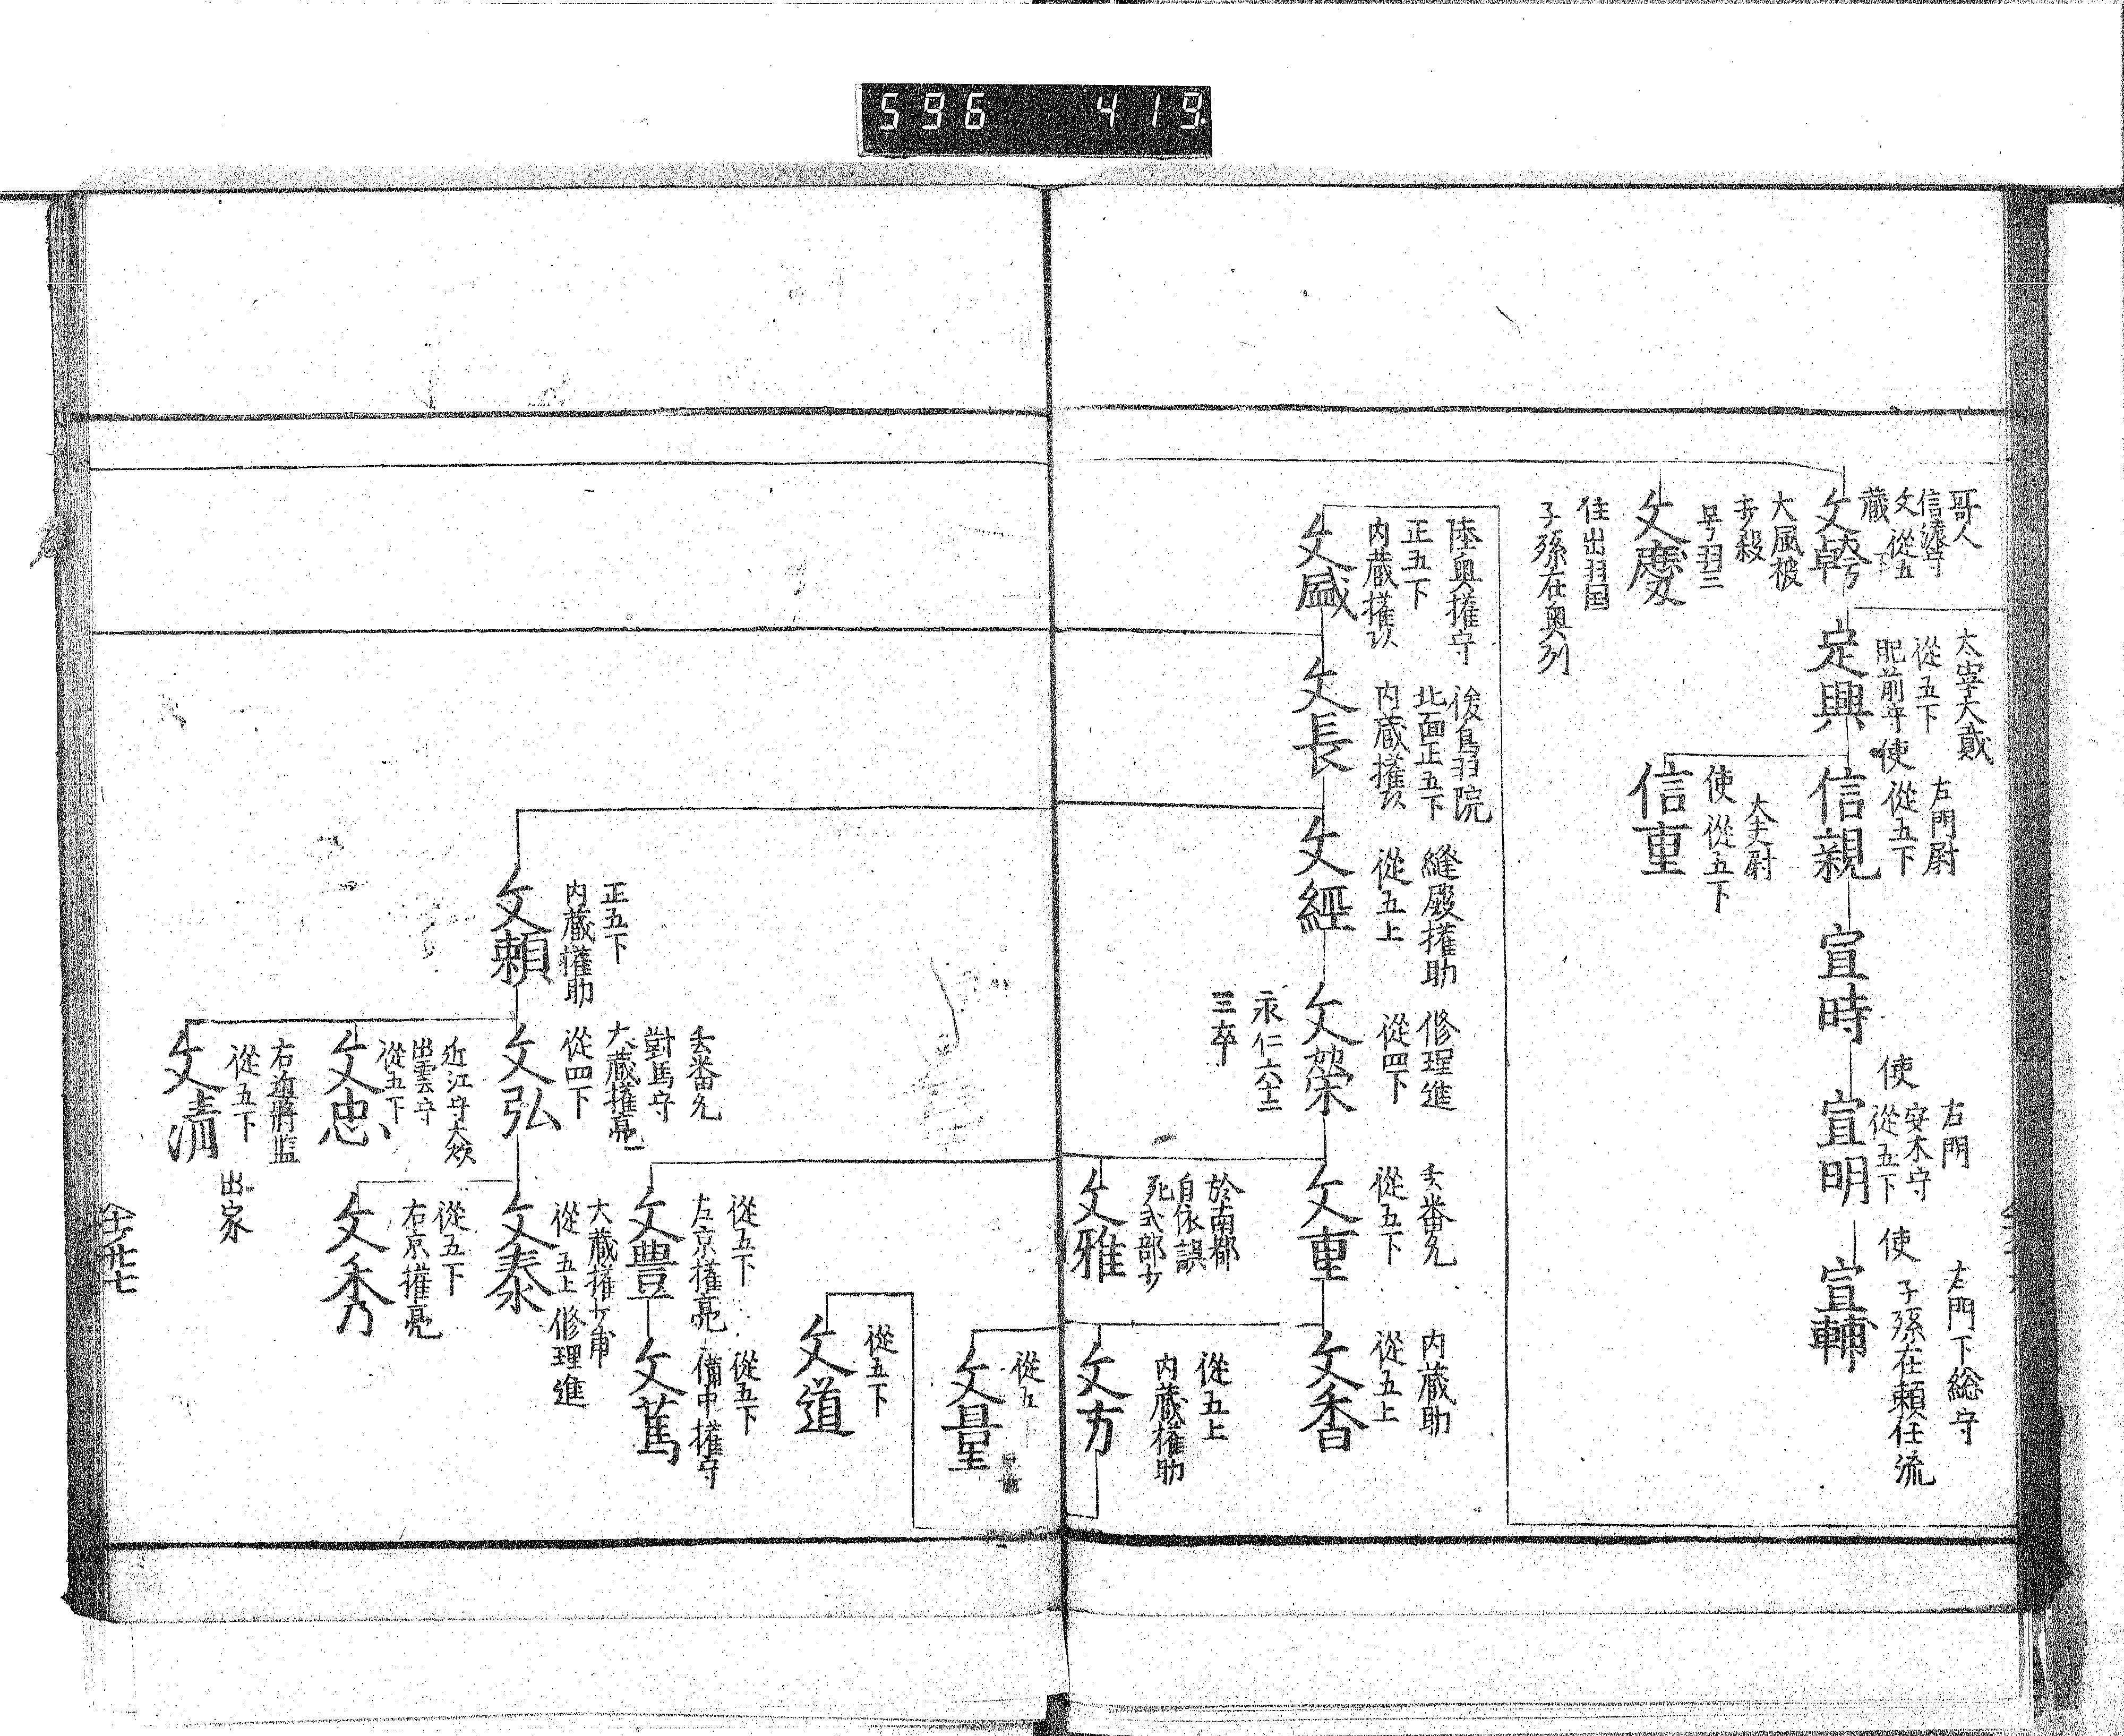 596 419.
哥人
信濃守
文 從五下
藏
文幹
太宰大貳
從五下
肥前守
定興
左門尉
使 從五下
信親
宣時
右門
安木守
使 從五下
宣明
左門下総守
使 子孫在頼任流
宣輔
大夫尉
使 從五下
信重
大風被
步殺
号羽三
文慶
住出羽国
子孫在奥列
陸奥權守
正五下
内蔵權次
文盛
後鳥羽院
北面正五下
内蔵權次
文長
縫殿權助
從五上
文經
修理進
從四下
文榮
永仁六十二
三卒
玄番允
從五下
文重
内蔵助
從五上
文香
於南都
自依誤
死式部少
文雅
從五上
内蔵權助
文方
從五
文量
從五下
文道
從五下
左京權亮
文豊
從五下
備中權守
文篤
正五下
内蔵權助
文頼
玄番允
對馬守
大蔵權亮
從四下
文弘
大蔵權少甫
從五上 修理進
文泰
從五下
右京權亮
文秀
近江守大炊
出雲守
從五下
文忠
右近將監
從五下
出家
文清